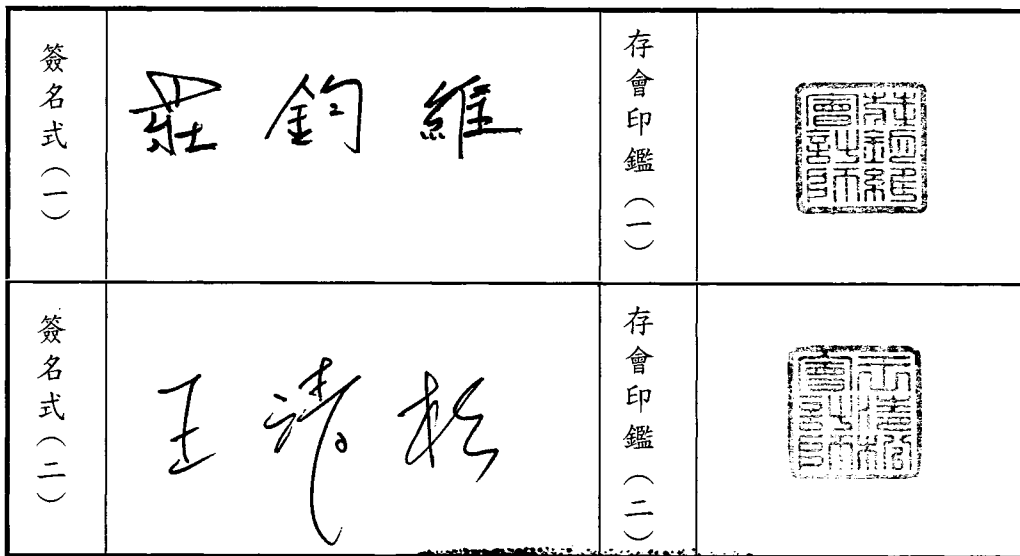 簽名式（一）
莊鈞維
存會印鑑（一）
莊鈞維會計師
簽名式（二）
王清松
存會印鑑（二）
王清松會計師